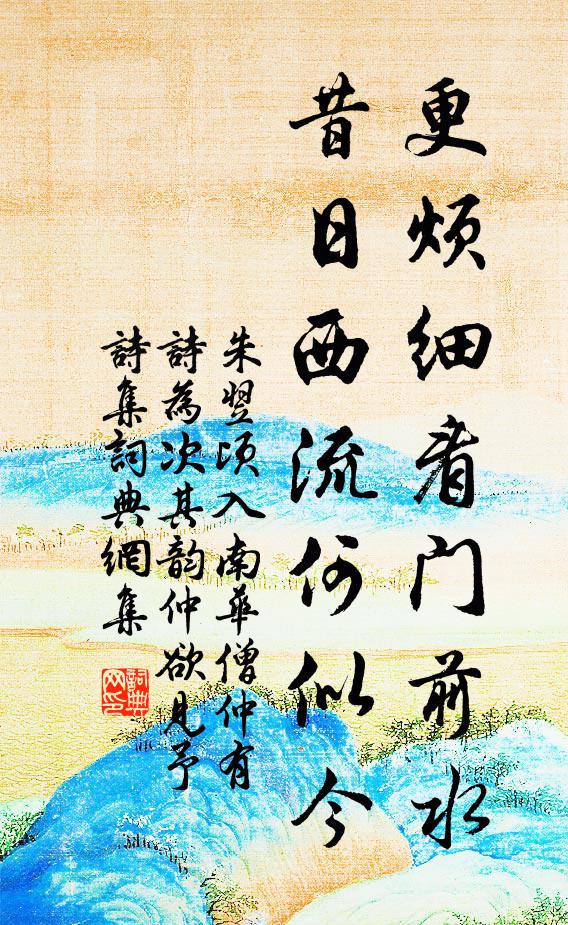 更烦细看门前水
昔日西流何似今
朱翌顷入南華僧仲有
詩為次其韵仲欲見予
詩集詞典網集
詞典
网印